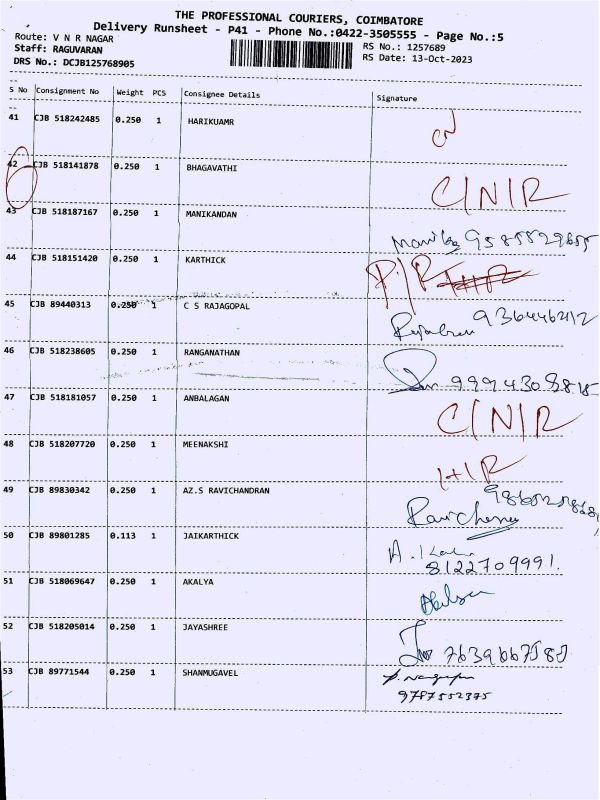 THE PROFESSIONAL COURIERS, COIMBATORE
Delivery Runsheet - P41 - Phone No.:0422-3505555 - Page No.:5
Route: V N R NAGAR
RS No.: 1257689
Staff: RAGUVARAN
RS Date: 13-Oct-2023
DRS No.: DCJB125768905
S No Consignment No Weight PCS Consignee Details Signature
41 CJB 518242485 0.250 1 HARIKUAMR
42 CJB 518141878 0.250 1 BHAGAVATHI C/N/R
43 CJB 518187167 0.250 1 MANIKANDAN
44 CJB 518151420 0.250 1 KARTHICK
45 CJB 89440313 0.250 1 C S RAJAGOPAL
46 CJB 518238605 0.250 1 RANGANATHAN
47 CJB 518181057 0.250 1 ANBALAGAN C/N/R
48 CJB 518207720 0.250 1 MEENAKSHI
49 CJB 89830342 0.250 1 AZ.S RAVICHANDRAN
50 CJB 89801285 0.113 1 JAIKARTHICK 8122709991.
51 CJB 518069647 0.250 1 AKALYA
52 CJB 518205014 0.250 1 JAYASHREE
53 CJB 89771544 0.250 1 SHANMUGAVEL
9787552375